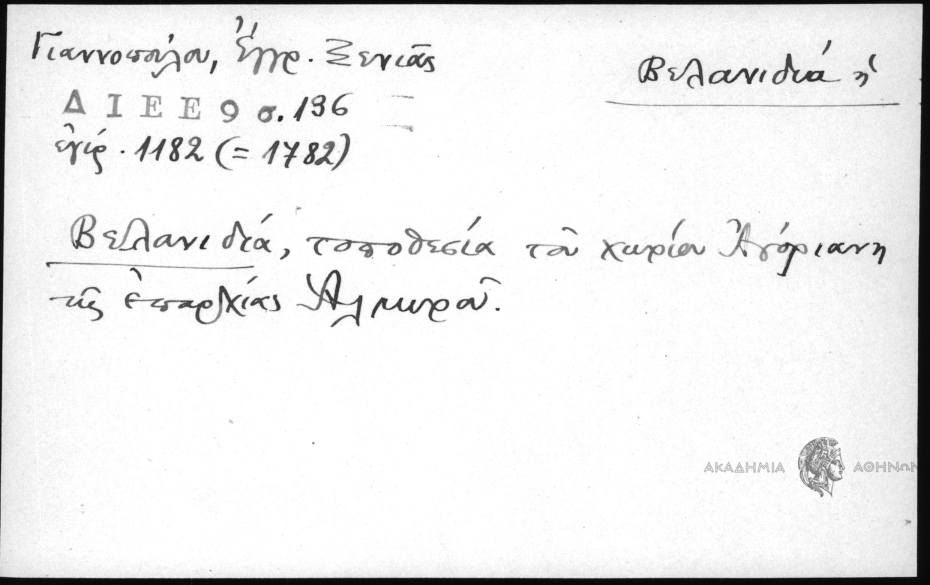 Γιαννοπούλου, Ἔγγρ. Ξενιᾶς
Βελανιδιά ἡ
ΔΙΕΕ 9 σ. 196
ἐγίρ. 1182 (= 1782)
Βελανιδιά, τοποθεσία τοῦ χωρίου Ἀγόριανη
τῆς ἐπαρχίας Ἁλμυροῦ.
ΑΚΑΔΗΜΙΑ ΑΘΗΝΩΝ